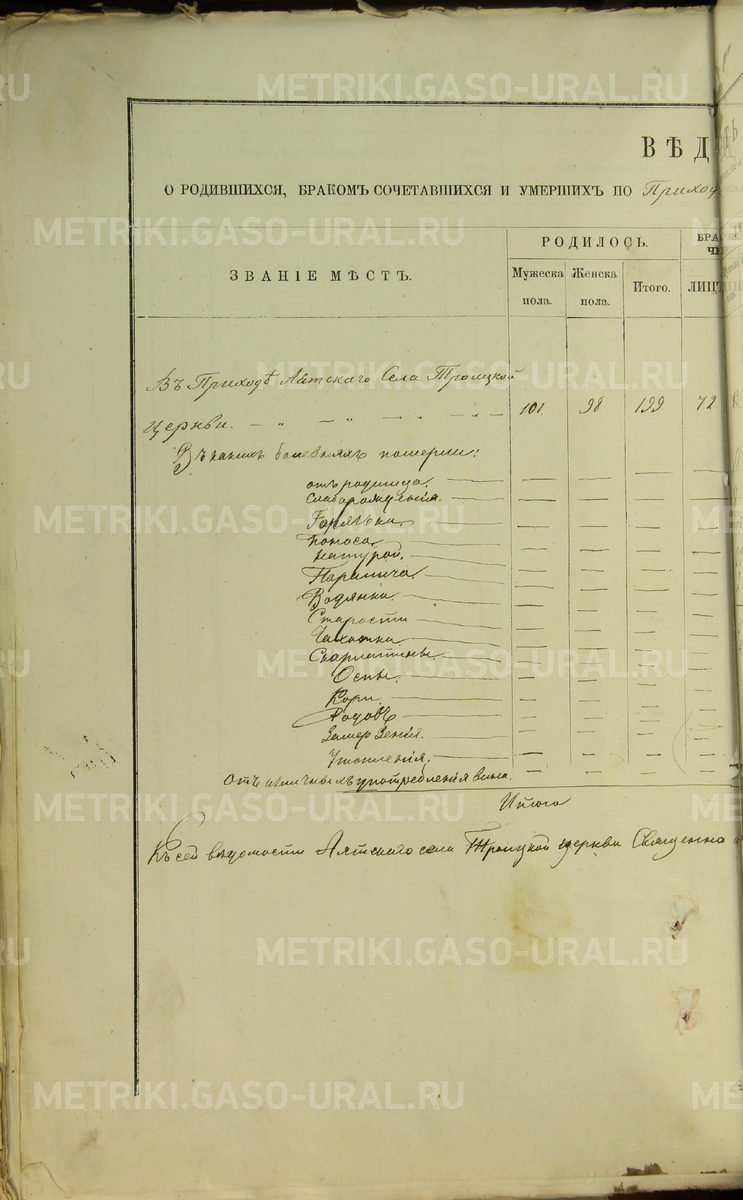 ВѢД
О РОДИВШИХСЯ, БРАКОМЪ СОЧЕТАВШИХСЯ И УМЕРШИХЪ ПО Приход
ЗВАНІЕ МѢСТЪ.
РОДИЛОСЬ.
БРА
ЧИ
Мужеска пола.
Женска пола.
Итого.
ЛИЦЪ
Въ Приходѣ Аятскаго Села Троицкой
Церкви. 101. 98 199 72
Въ какихъ болезняхъ померли:
отъ родимца.
Слаборожденія.
Горячки.
Поноса.
Натурой.
Паралича.
Водянки.
Старости
Чахотки
Скарлатины.
Оспы.
Кори.
Родовъ
Замерзенія.
Утопленія.
Отъ излишняго употребленія вина.
Итого
Къ сей вѣдомости Аятскаго села Троицкой церкви Священно
METRIKI.GASO-URAL.RU